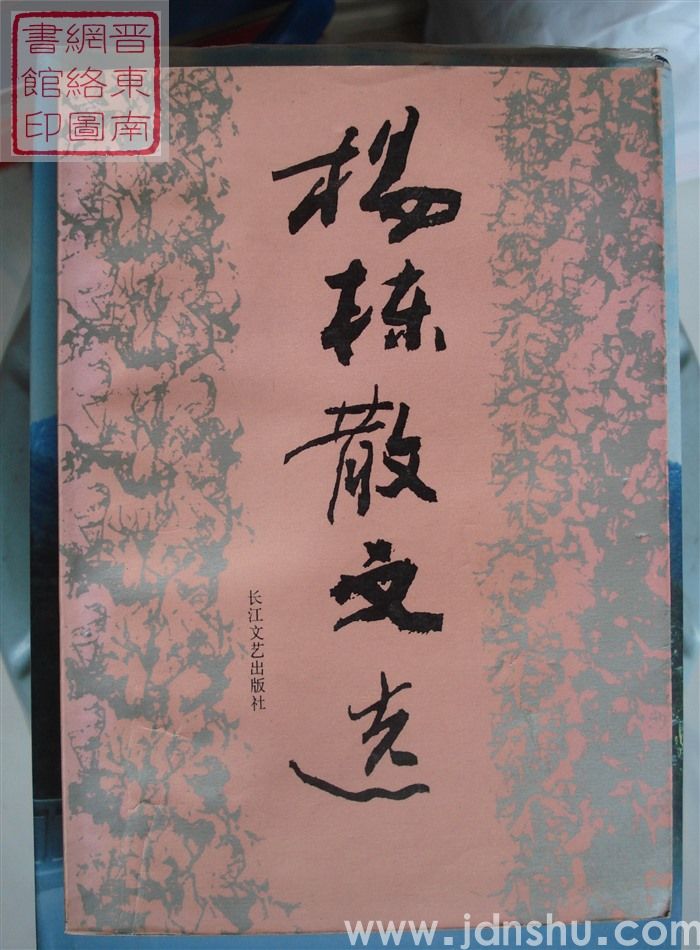 晋東南
網絡圖
書館印
楊栋散文选
长江文艺出版社
www.jdnshu.com